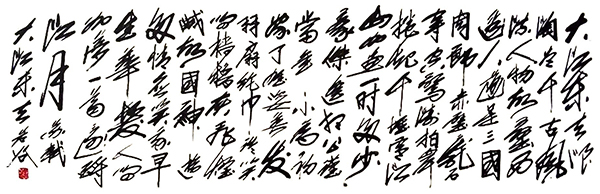 大江东去浪
淘尽千古风
流人物故垒西
边人道是三国
周郎赤壁乱石
穿空惊涛拍岸
卷起千堆雪江
山如画一时多少
豪杰遥想公瑾
当年小乔初
嫁了雄姿英发
羽扇纶巾谈笑
间樯橹灰飞烟
灭故国神游
多情应笑我早
生华发人间
如梦一尊还酹
江月 苏轼
大江东去